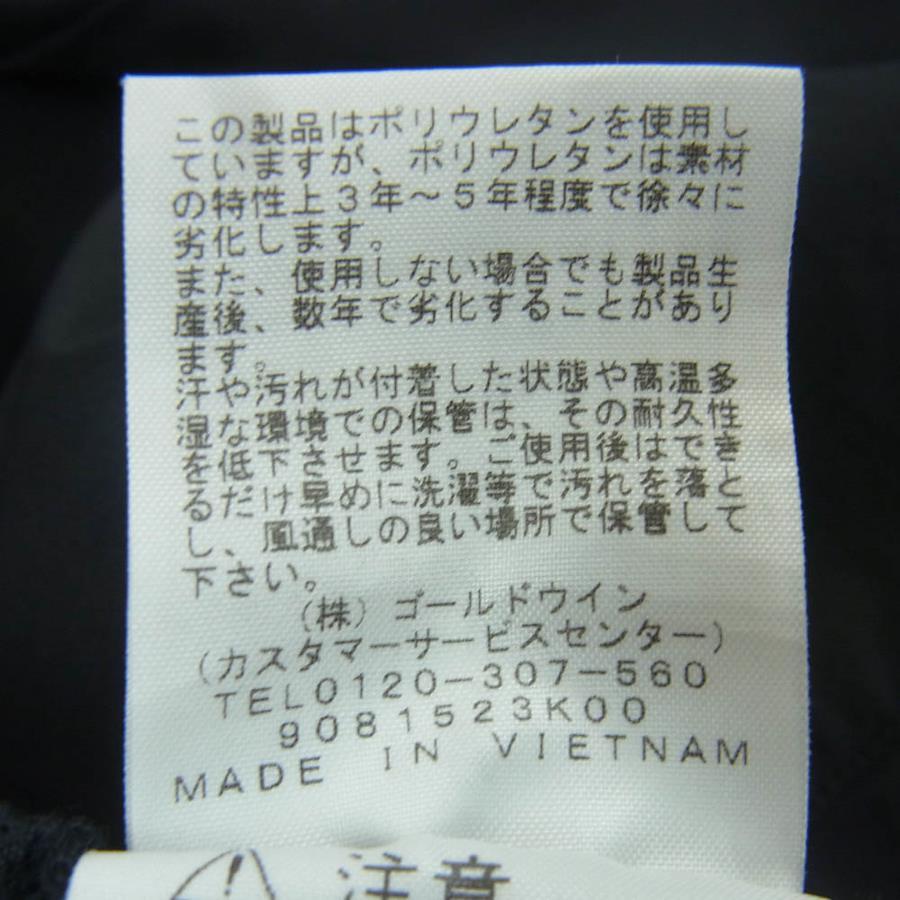 この製品はポリウレタンを使用し
ていますが、ポリウレタンは素材
の特性上3年～5年程度で徐々に
劣化します。
また、使用しない場合でも製品生
産後、数年で劣化することがあり
ます。
汗や汚れが付着した状態や高温多
湿な環境での保管は、その耐久性
を低下させます。ご使用後はでき
るだけ早めに洗濯等で汚れを落と
し、風通しの良い場所で保管して
下さい。
(株)ゴールドウイン
(カスタマーサービスセンター)
TEL0120-307-560
9081523K00
MADE IN VIETNAM
注意